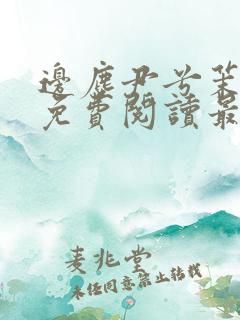 邊塵尹兮
免費閱讀最
麦兆堂
未经同意禁止转载